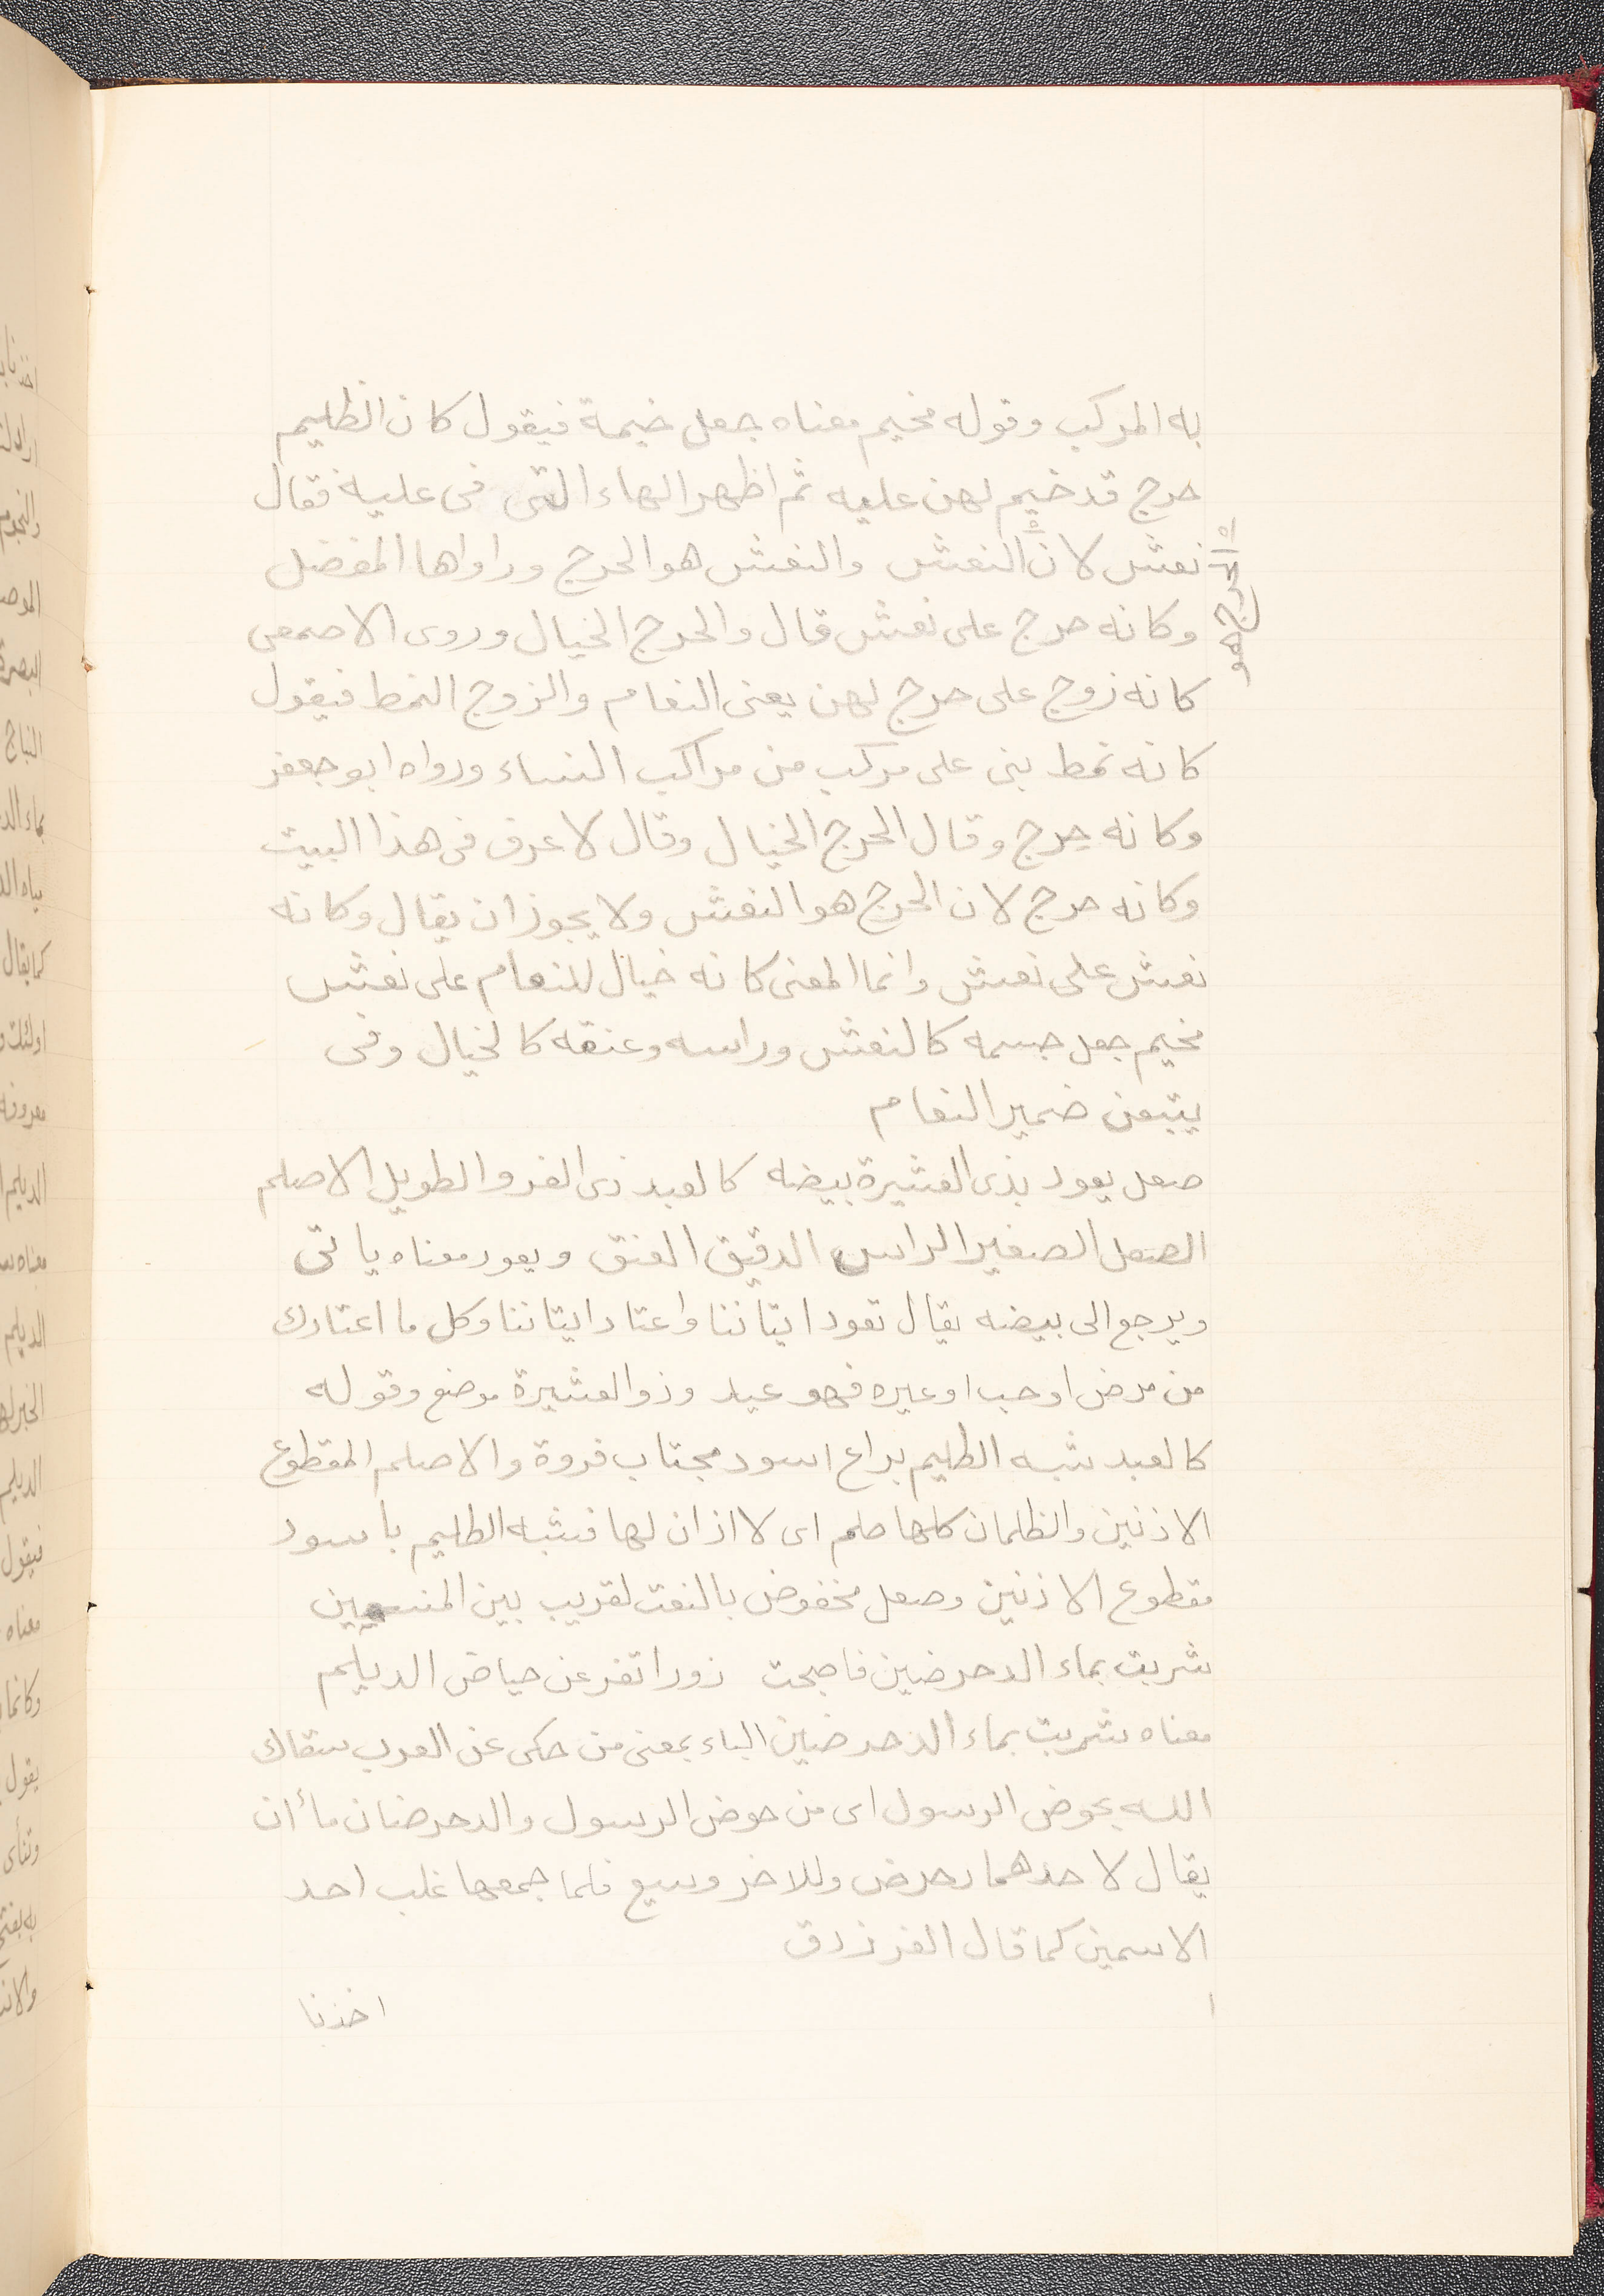 به المركب وقوله مخيم معناه جعل خيمة فيقول كان الظليم
حرج قد خيم لهن عليه ثم اظهر الهاء التى فى عليه فقال
نعش لان النعش والنعش هو الحرج وراواها المفضل
وكانه حرج على نعش قال والحرج الخيال وروى الاصمعى
كانه زوج على حرج لهن يعنى النعام والزوج النمط فيقول
كانه نمط بنى على مركب من مراكب النساء ورواه ابو جعفر
وكانه حرج وقال الحرج الخيال وقال لا عرف فى هذا البيت
وكانه حرج لان الحرج هو النعش ولا يجوز ان يقال وكانه
نعش على نعش وانما المعنى كانه خيال للنعام على نعش
مخيم جعل جسمه كالنعش وراسه وعنقه كالخيال وفى
يتبعن ضمير النعام
صعل يعود بذى العشيرة بيضه كالعبد ذى الفرو الطويل الاصلم
الصعل الصغير الراس الدقيق العنق ويعود معناه ياتى
ويرجع الى بيضه يقال تعود ايتاننا واعتاد ايتاننا وكل ما اعتادك
من مرض او حب او غيره فهو عيد وذو العشيرة موضع وقوله
كالعبد شبه الظليم براع اسود مجتاب فروة والاصلم المقطوع
الاذنين والظلمان كلها صلم اى لا اذان لها فشبه الظليم باسود
مقطوع الاذنين وصعل مخفوض بالنعت لقريب بين المنسمين
شربت بماء الدحرضين فاصبحت زورا تنفر عن حياض الديلم
معناه شربت بماء الدحرضين الباء بمعنى من حكى عن العرب سقاك
الله بحوض الرسول اى من حوض الرسول والدحرضان ماأن
يقال لاحدهما دحرض وللاخر وسيع فلما جمعها غلب احد
الاسمين كما قال الفرزدق
اخذنا